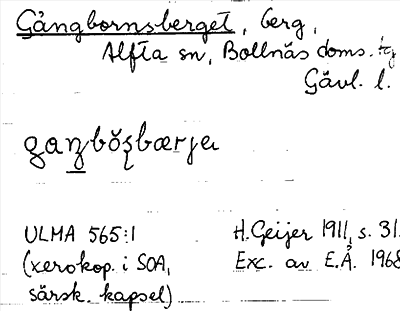 Gångbornsberget, berg,
Alfta sn, Bollnäs doms. tg
Gävl. l.
gaŋbo̊ʂbærjeɩ
ULMA 565:1 H. Geijer 1911, s. 31.
(xerokop. i SOA, Exc. av E.Å. 1968
särsk. kapsel)